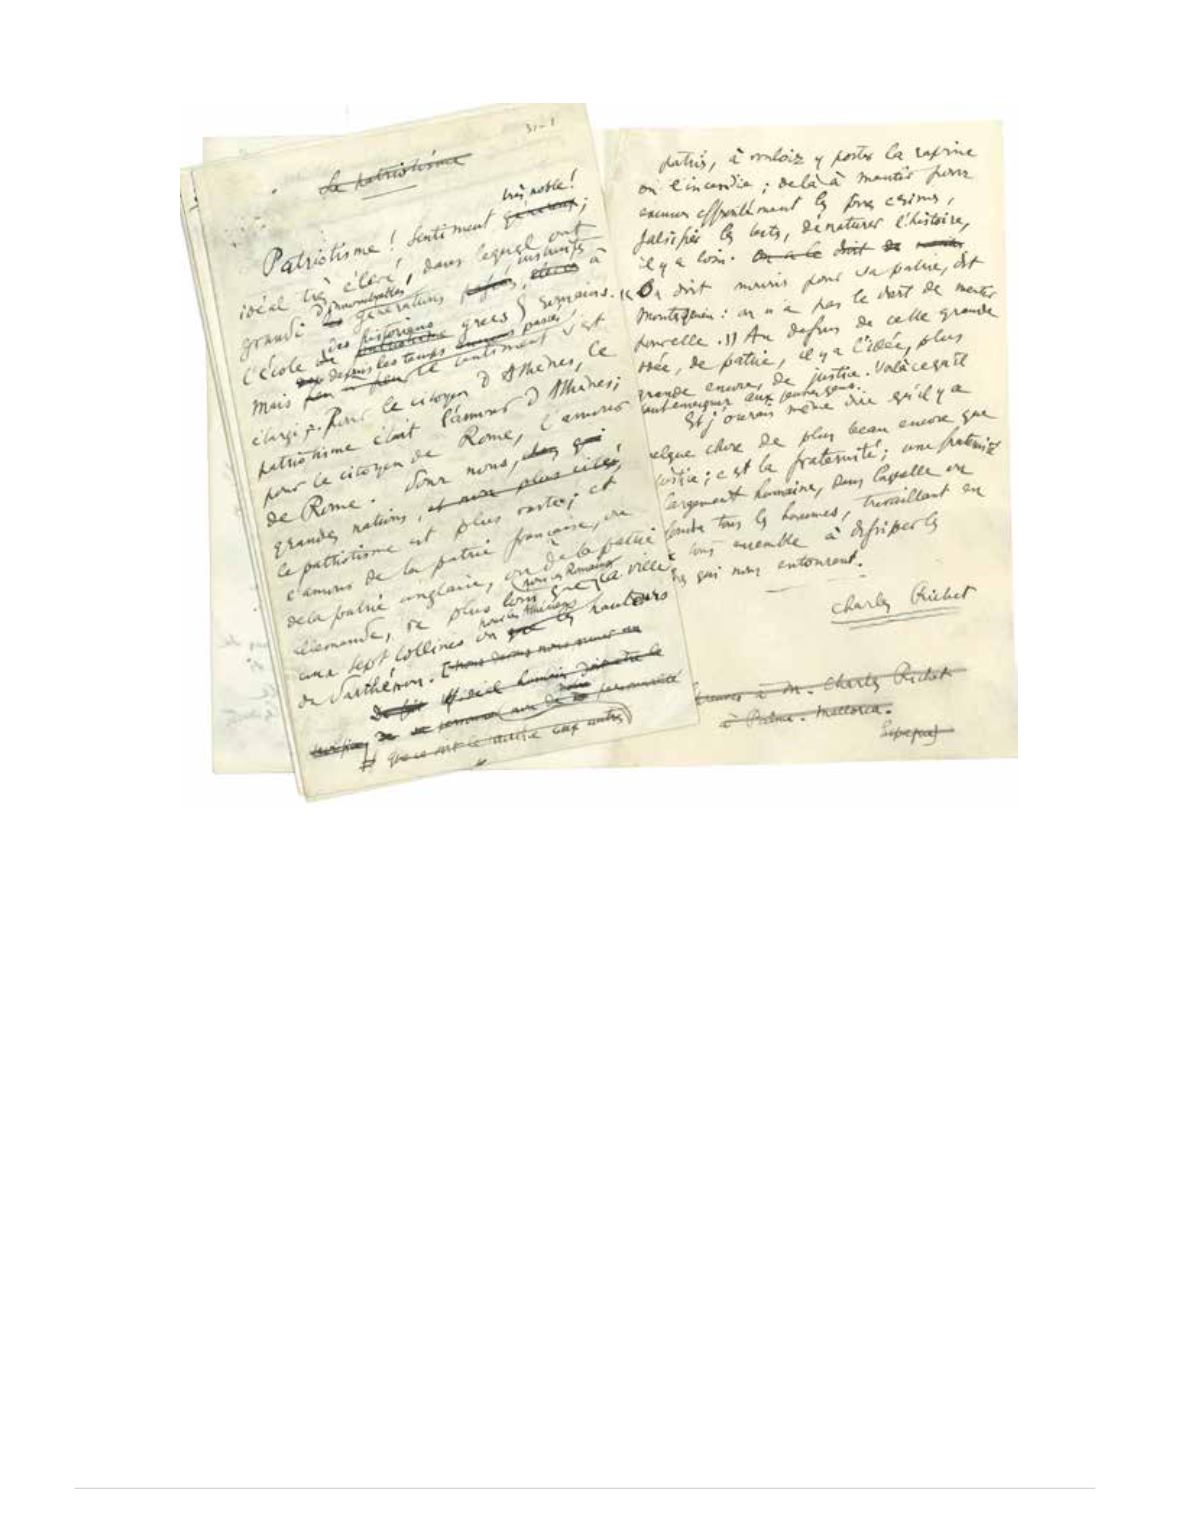 31-1
Le patriotisme
très noble!
Patriotisme! Sentiment généreux;
idéal très élevé, dans lequel ont
d'innombrables instruites
grandi les générations à
des historiens
l'école de patriotisme grecs & romains.
depuis les temps passés
Mais peu à peu le sentiment s'est
élargi. Pour le citoyen d'Athènes, le
patriotisme était l'amour d'Athènes;
pour le citoyen de Rome, l'amour
de Rome. Pour nous,
grandes nations, et non plus cités,
le patriotisme est plus vaste; et
l'amour de la patrie française, ou
de la patrie anglaise, ou de la patrie
pour les Romains
allemande, va plus loin que la ville
pour les Athéniens
aux sept collines ou que les hauteurs
du Parthénon.
que ce soit le maître aux autres
patrie, à vouloir y porter la rapine
ou l'incendie; de là à mentir pour
excuser effrontément les pires crimes,
falsifier les textes, dénaturer l'histoire,
il y a loin. On a le droit de
« On doit mourir pour sa patrie, dit
: on n'a pas le droit de mentir
pour elle. » Au dessus de cette grande
idée, de patrie, il y a l'idée, plus
grande encore, de justice. Voilà ce qu'il
faut enseigner aux jeunes gens.
Et j'oserais même dire qu'il y a
quelque chose de plus beau encore que
justice; c'est la fraternité; une fraternité
largement humaine, dans laquelle on
tous les hommes, travaillant en
tous ensemble à
qui nous entourent.
Charles Richet
à M. Charles Richet
à Palma. Mallorca.